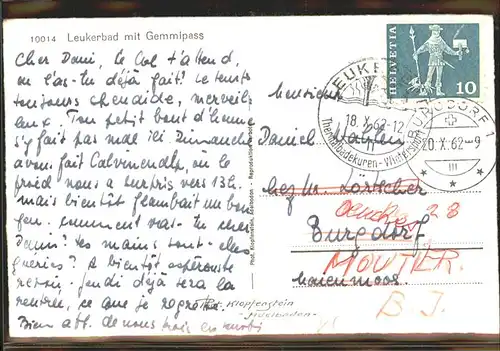 10014 Leukerbad mit Gemmipass
Cher Dani, le Col t'attend,
ou l'as-tu déjà fait? Le temps
toujours chenaide, merveil-
leux. Ton petit bout d'femme
s'y fait pas mal ici. Dimanche
avons fait Calvinendalp, où le
froid nous a surpris vers 13h.
mais bientôt flambait un bon
feu. Comment vas-tu cher
Dani? Tes mains sont-elles
guéries? A bientôt
revoir. Jeudi déjà sera la
rentrée, ce que je regrette.
Bien aff. de nous trois
Phot. Klopfenstein
Adelboden
Monsieur
Daniel
bez. Lörtscher
Oenches 28
Burgdorf
MOUTIER
B J.
HELVETIA
10
LEUKERBAD
18.X.62-12
Thermalbadekuren-Wintersport
BURGDORF 1
20.X.62-9
III